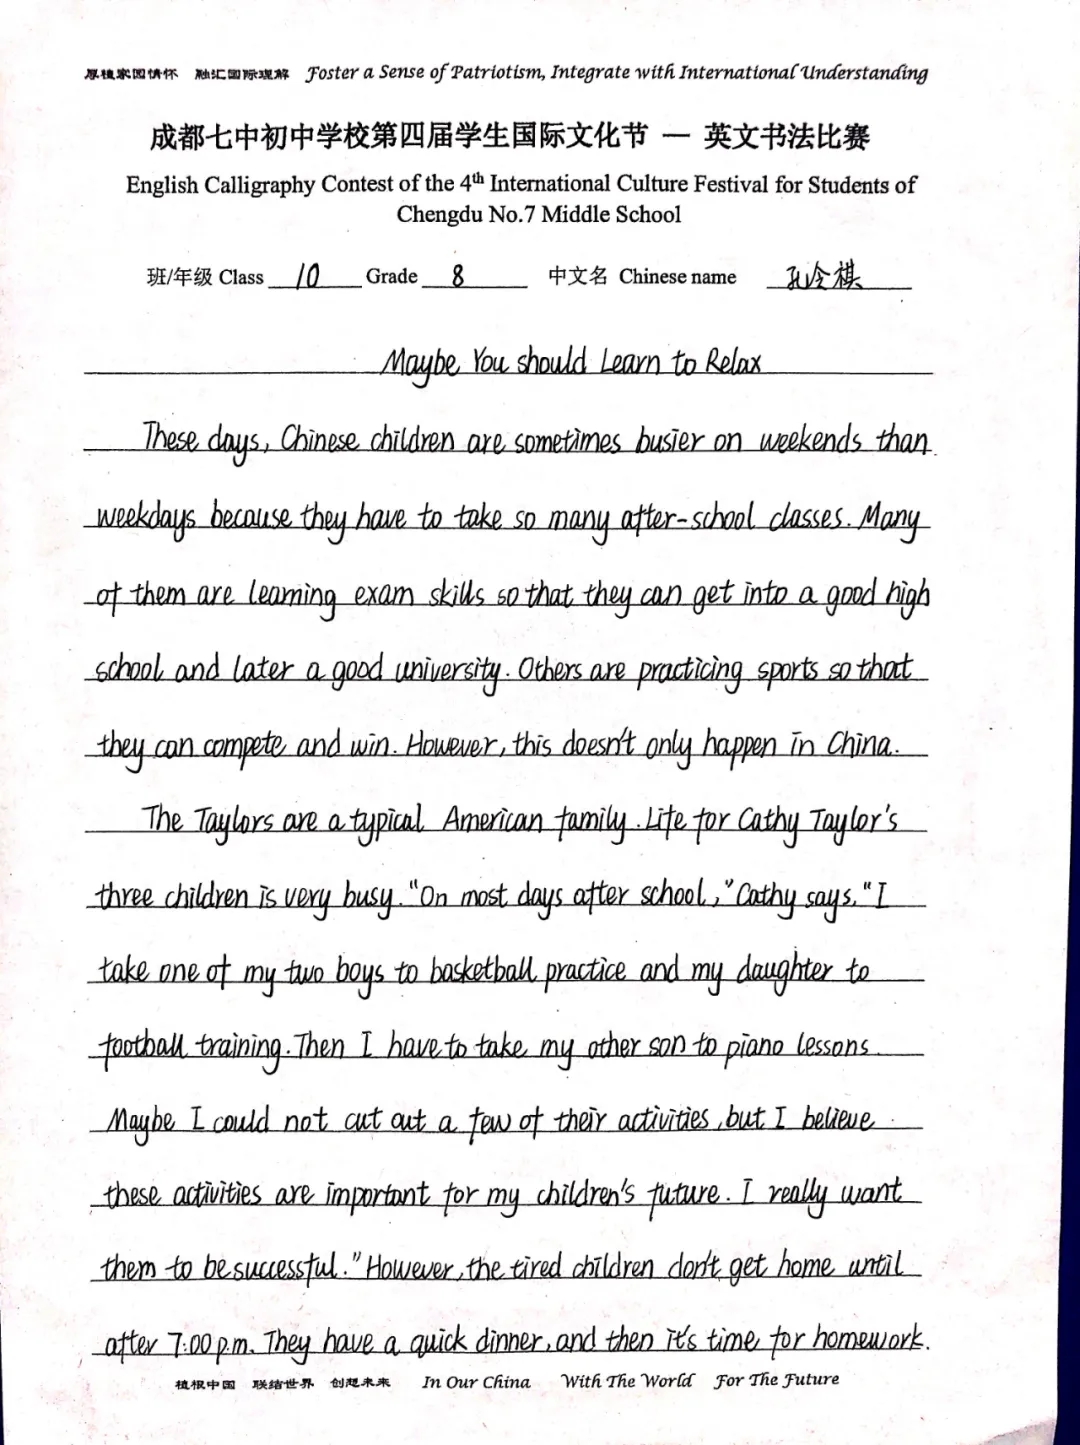 厚植家国情怀 融汇国际理解 Foster a Sense of Patriotism, Integrate with International Understanding
成都七中初中学校第四届学生国际文化节 — 英文书法比赛
English Calligraphy Contest of the 4th International Culture Festival for Students of
Chengdu No.7 Middle School
班/年级 Class 10 Grade 8 中文名 Chinese name 孔令祺
Maybe You should Learn to Relax
These days, Chinese children are sometimes busier on weekends than
weekdays because they have to take so many after-school classes. Many
of them are learning exam skills so that they can get into a good high
school and later a good university. Others are practicing sports so that
they can compete and win. However, this doesn't only happen in China.
The Taylors are a typical American family. Life for Cathy Taylor's
three children is very busy. "On most days after school," Cathy says, "I
take one of my two boys to basketball practice and my daughter to
football training. Then I have to take my other son to piano lessons.
Maybe I could not cut out a few of their activities, but I believe
these activities are important for my children's future. I really want
them to be successful." However, the tired children don't get home until
after 7:00 p.m. They have a quick dinner, and then it's time for homework.
植根中国 联结世界 创想未来 In Our China With The World For The Future